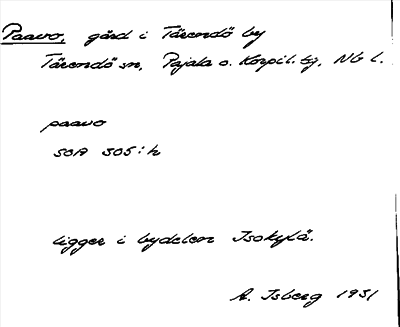 Paavo, gård i Tärendö by
Tärendö sn, Pajala o. Korpil. tg, Nb l.
paavo
SOA 305:h
ligger i bydelen Isokylä.
A. Isberg 1931